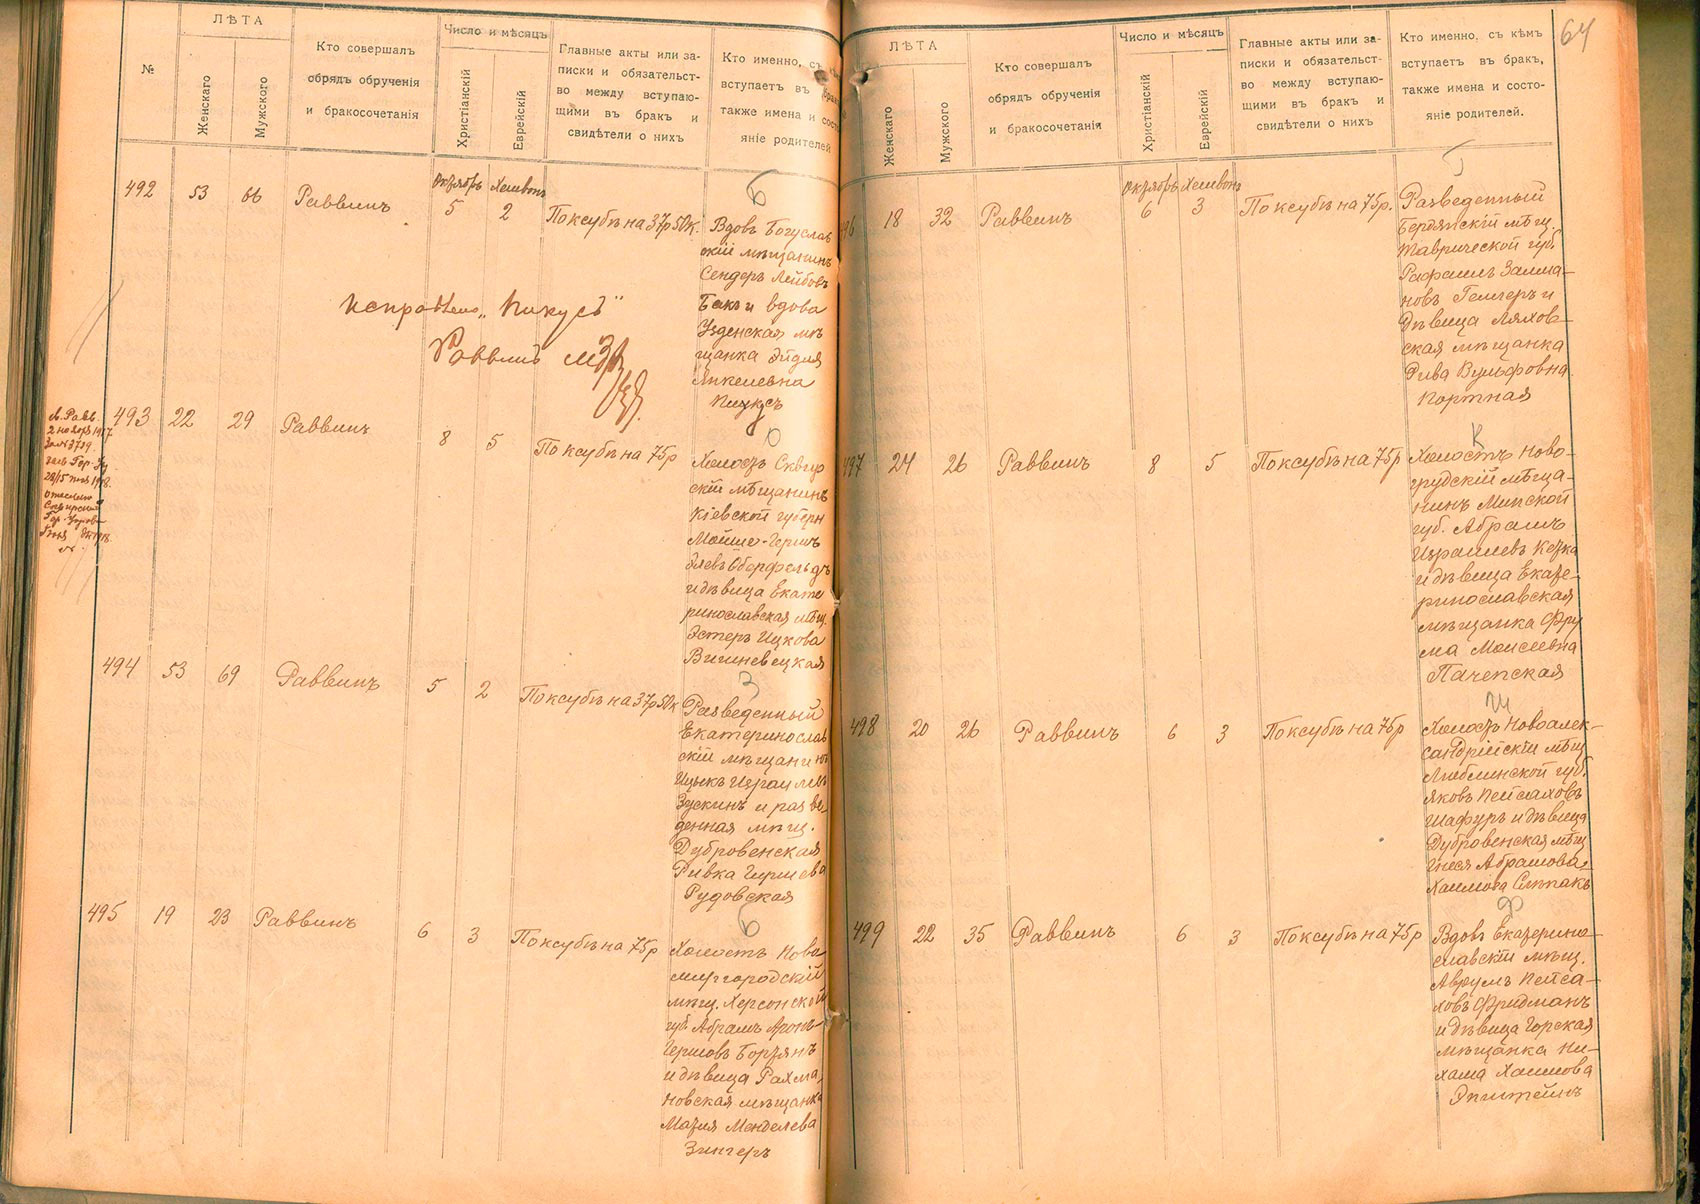 ЛѢТА
Число и мѣсяцъ
№
Женскаго
Мужского
Кто совершалъ
обрядъ обрученія
и бракосочетанія
Христіанскій
Еврейскій
Главные акты или за-
писки и обязательст-
во между вступаю-
щими въ бракъ и
свидѣтели о нихъ
Кто именно, съ
вступаетъ въ
также имена и состо
яніе родителей
492 53 66 Раввинъ
Октябрь Хешвонъ
5 2
По ксубѣ на 37р 50к.
Б
Вдовъ Богуслав
скій мѣщанинъ
Сендеръ Лейбовъ
Бакъ и вдова
Узденская мѣ
щанка Эйдля
Янкелевна
Пикусъ
Исправлено „Пикусъ"
Раввинъ
493 22 29 Раввинъ
8 5
По ксубѣ на 75р
О
Холостъ Сквир
скій мѣщанинъ
Кіевской губерн
Мойше-Гершъ
Оберфельдъ
и дѣвица Екате
ринославская мѣщ.
Эстеръ Ицкова
Вишневецкая
494 53 69 Раввинъ
5 2
По ксубѣ на 37р 50к
З
Разведенный
Екатеринослав
скій мѣщанинъ
Ицыкъ Израилевъ
Зускинъ и разве
денная мѣщ.
Дубровенская
Ривка Гиршева
Рудовская
495 19 23 Раввинъ
6 3
По ксубѣ на 75р
Б
Холостъ Ново
миргородскій
мѣщ. Херсонской
губ. Абрамъ Аронъ-
Гершовъ Бортянъ
и дѣвица Рахма
новская мѣщанка
Марія Менделева
Зингеръ
64
ЛѢТА
Число и мѣсяцъ
Женскаго
Мужского
Кто совершалъ
обрядъ обрученія
и бракосочетанія
Христіанскій
Еврейскій
Главные акты или за-
писки и обязательст-
во между вступаю-
щими въ бракъ и
свидѣтели о нихъ
Кто именно, съ кѣмъ
вступаетъ въ бракъ,
также имена и состо-
яніе родителей.
496 18 32 Раввинъ
Октябрь Хешвонъ
6 3
По ксубѣ на 75р.
Г
Разведенный
Бердянскій мѣщ.
Таврической губ.
Рафаилъ Залма-
новъ Гемгеръ и
дѣвица Ляхов-
ская мѣщанка
Рива Вульфовна
Портная
497 24 26 Раввинъ
8 5
По ксубѣ на 75р
К
Холостъ Ново-
грудскій мѣща-
нинъ Минской
губ. Абрамъ
Израилевъ
и дѣвица Екате-
ринославская
мѣщанка Фру
ма Моисеевна
Пачепская
498 20 26 Раввинъ
6 3
По ксубѣ на 75р
Ш
Холостъ Новоалек-
сандрійскій мѣщ
Люблинской губ.
Яковъ Пейсаховъ
Шафуръ и дѣвица
Дубровенская мѣщ
Гнеся Абрамова-
Хаимова Слипакъ
499 22 35 Раввинъ
6 3
По ксубѣ на 75р
Ф
Вдовъ Екатерино-
славскій мѣщ.
Аврумъ Пейса-
ховъ Фридманъ
и дѣвица Горская
мѣщанка Ни-
хама Хаимова
Эпштейнъ